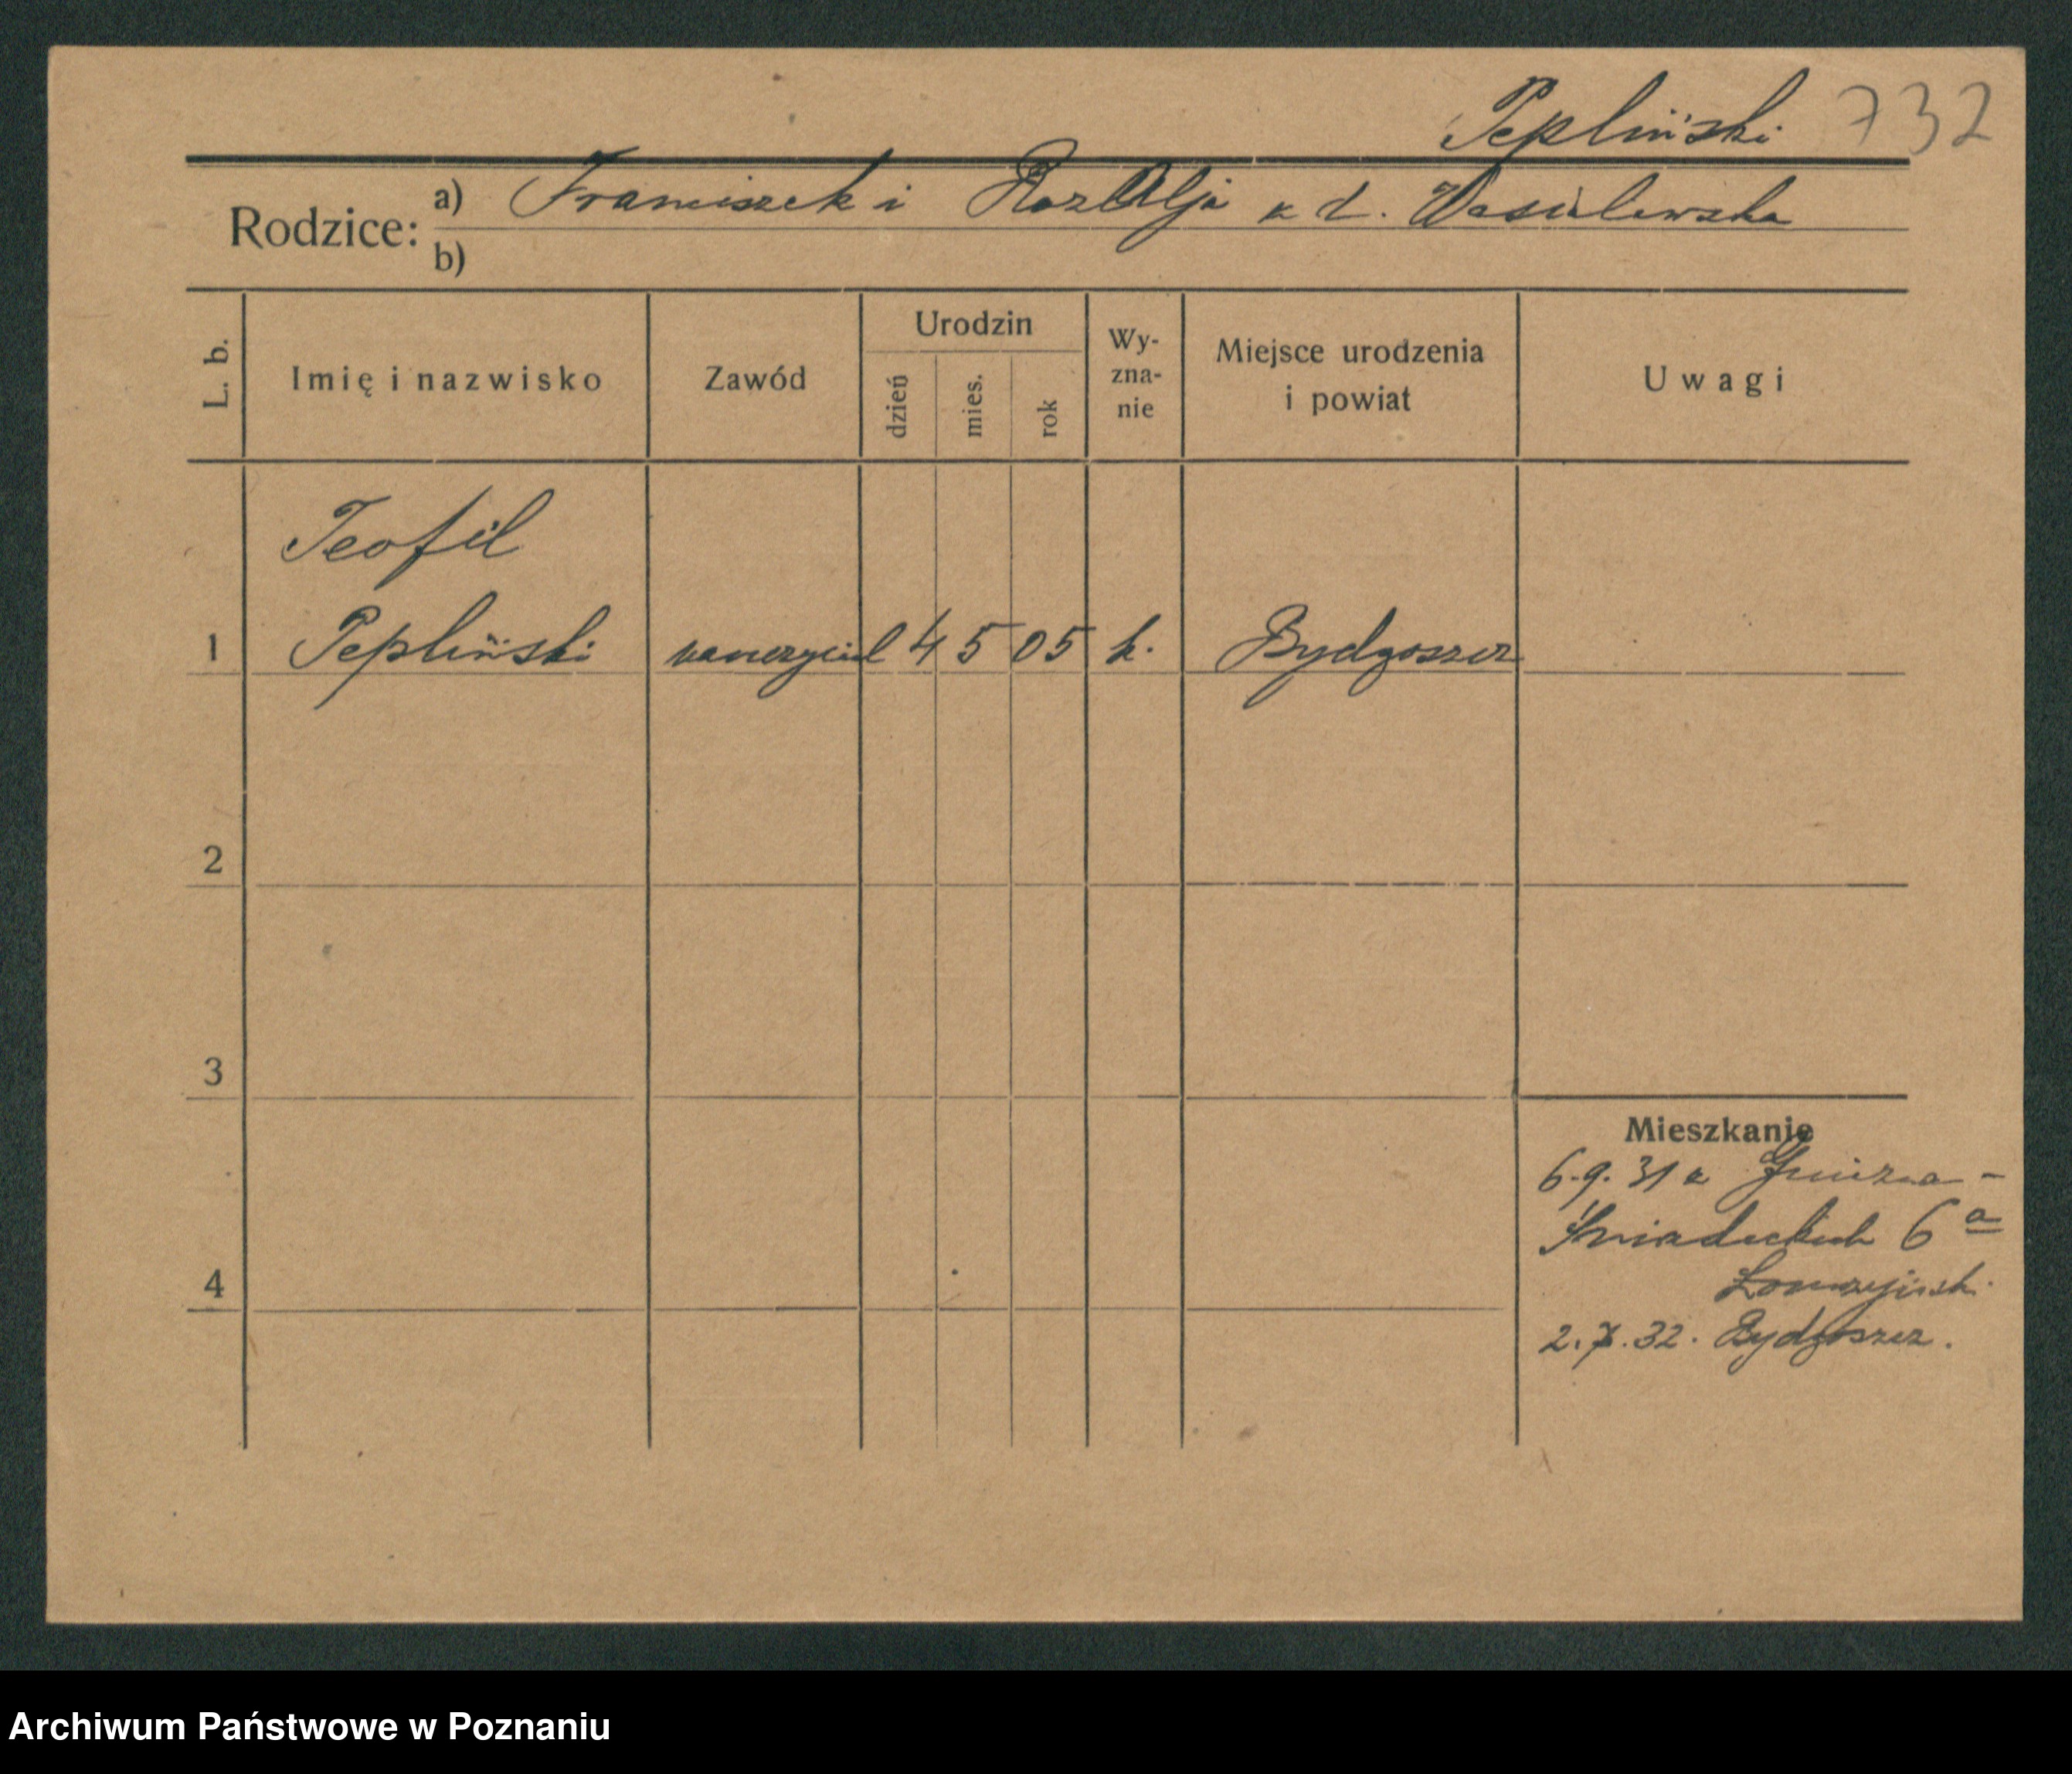 Pepliński 732
Rodzice: a) Franciszek i Rozalja z d. Wasilewska
b)
L. b. Imię i nazwisko Zawód Urodzin dzień mies. rok Wy-zna-nie Miejsce urodzenia i powiat Uwagi
Teofil
1 Pepliński nauczyciel 4 5 05 k. Bydgoszcz
2
3
Mieszkanie
6.9.31 z Gniezna -
Śniadeckich 6 a
4
2.7.32. Bydgoszcz.
Archiwum Państwowe w Poznaniu